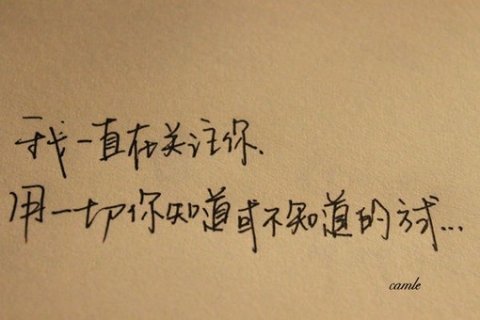 我一直在关注你.
用一切你知道或不知道的方式...
camle